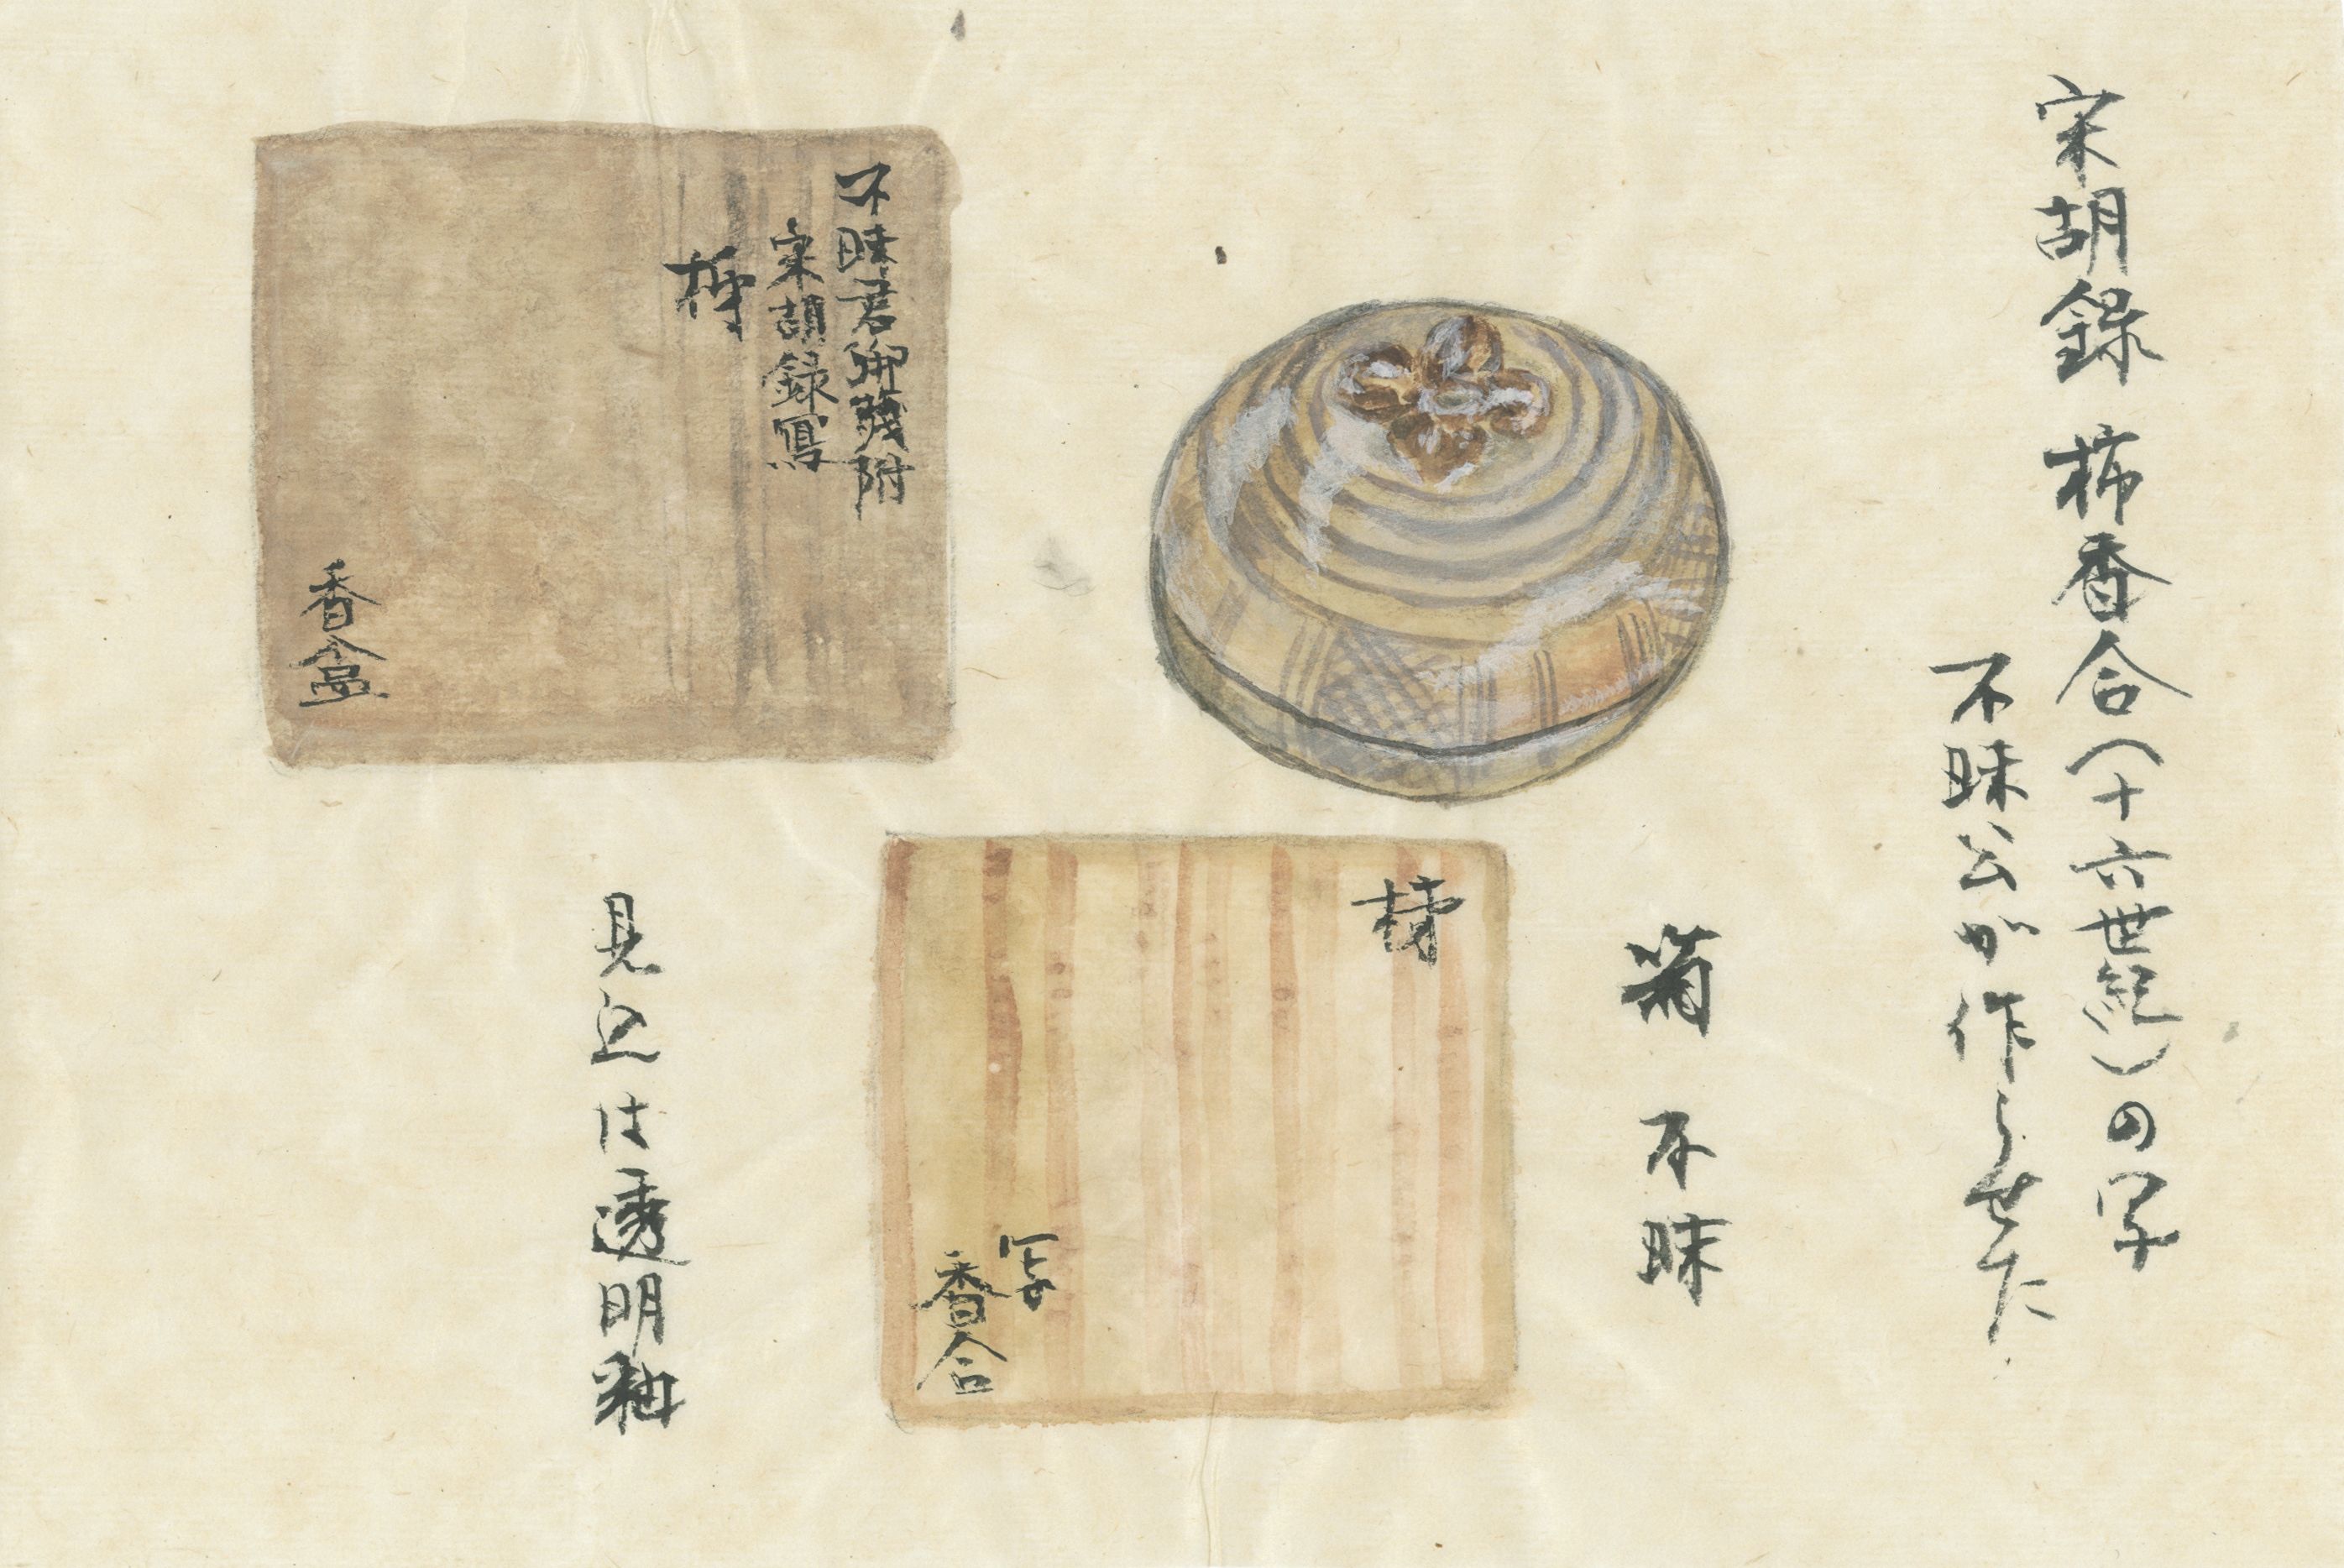 宋胡録 柿香合（十六世紀）の写
不昧公が作らせた
箱 不昧
柿
写
香合
不昧君御箋附
宋胡録寫
柿
香盒
見込は透明釉